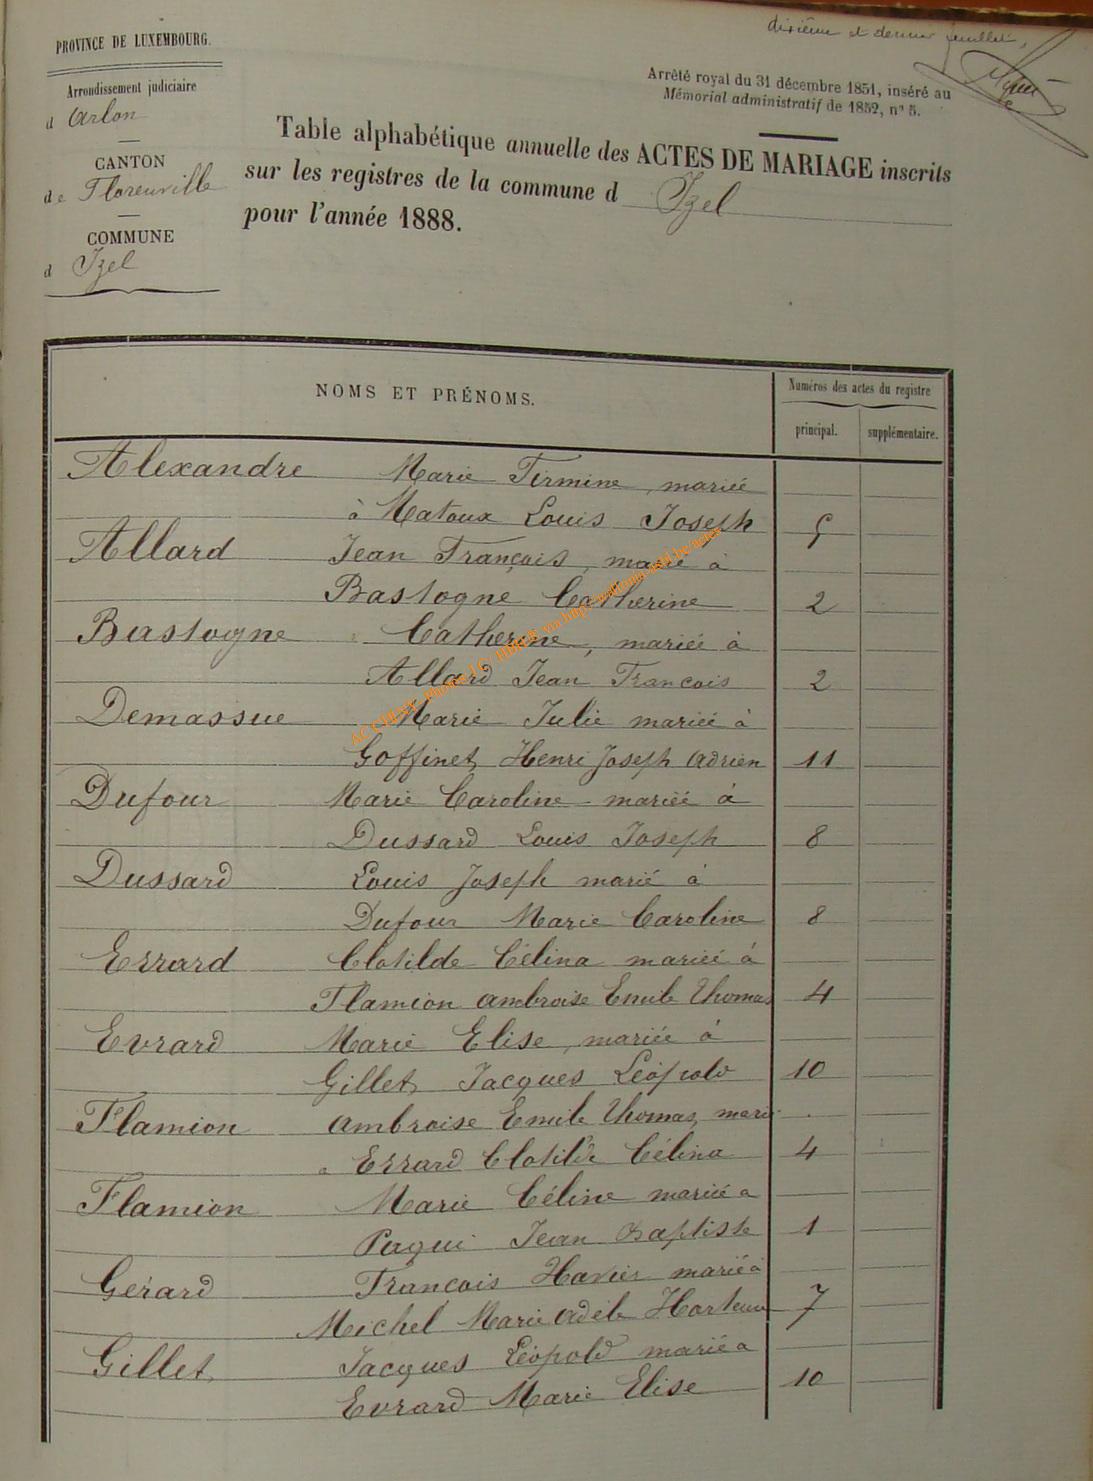 dixième et dernier feuillet,
PROVINCE DE LUXEMBOURG.
Arrondissement judiciaire
d Arlon
CANTON
de Florenville
COMMUNE
d Izel
Arrêté royal du 31 décembre 1851, inséré au
Mémorial administratif de 1852, n° 5.
Table alphabétique annuelle des ACTES DE MARIAGE inscrits
sur les registres de la commune d Izel
pour l'année 1888.
NOMS ET PRÉNOMS.
Numéros des actes du registre
principal. supplémentaire.
Alexandre Marie Firmine, mariée
à Matoux Louis Joseph 5
Allard Jean François, marié à
Bastogne Catherine 2
Bastogne Catherine, mariée à
Allard Jean Francois 2
Demassue Marie Julie mariée à
Goffinet Henri Joseph Adrien 11
Dufour Marie Caroline mariée à
Dussard Louis Joseph 8
Dussard Louis Joseph marié à
Dufour Marie Caroline 8
Errard Clotilde Célina mariée à
Flamion Ambroise Emile Thomas 4
Evrard Marie Elise, mariée à
Gillet Jacques Léopold 10
Flamion Ambroise Emile Thomas, marié
à Errard Clotilde Célina 4
Flamion Marie Céline mariée a
Paqui Jean Baptiste 1
Gérard Francois Xavier marié à
Michel Marie Adèle Hortense 7
Gillet Jacques Léopold marié a
Evrard Marie Elise 10